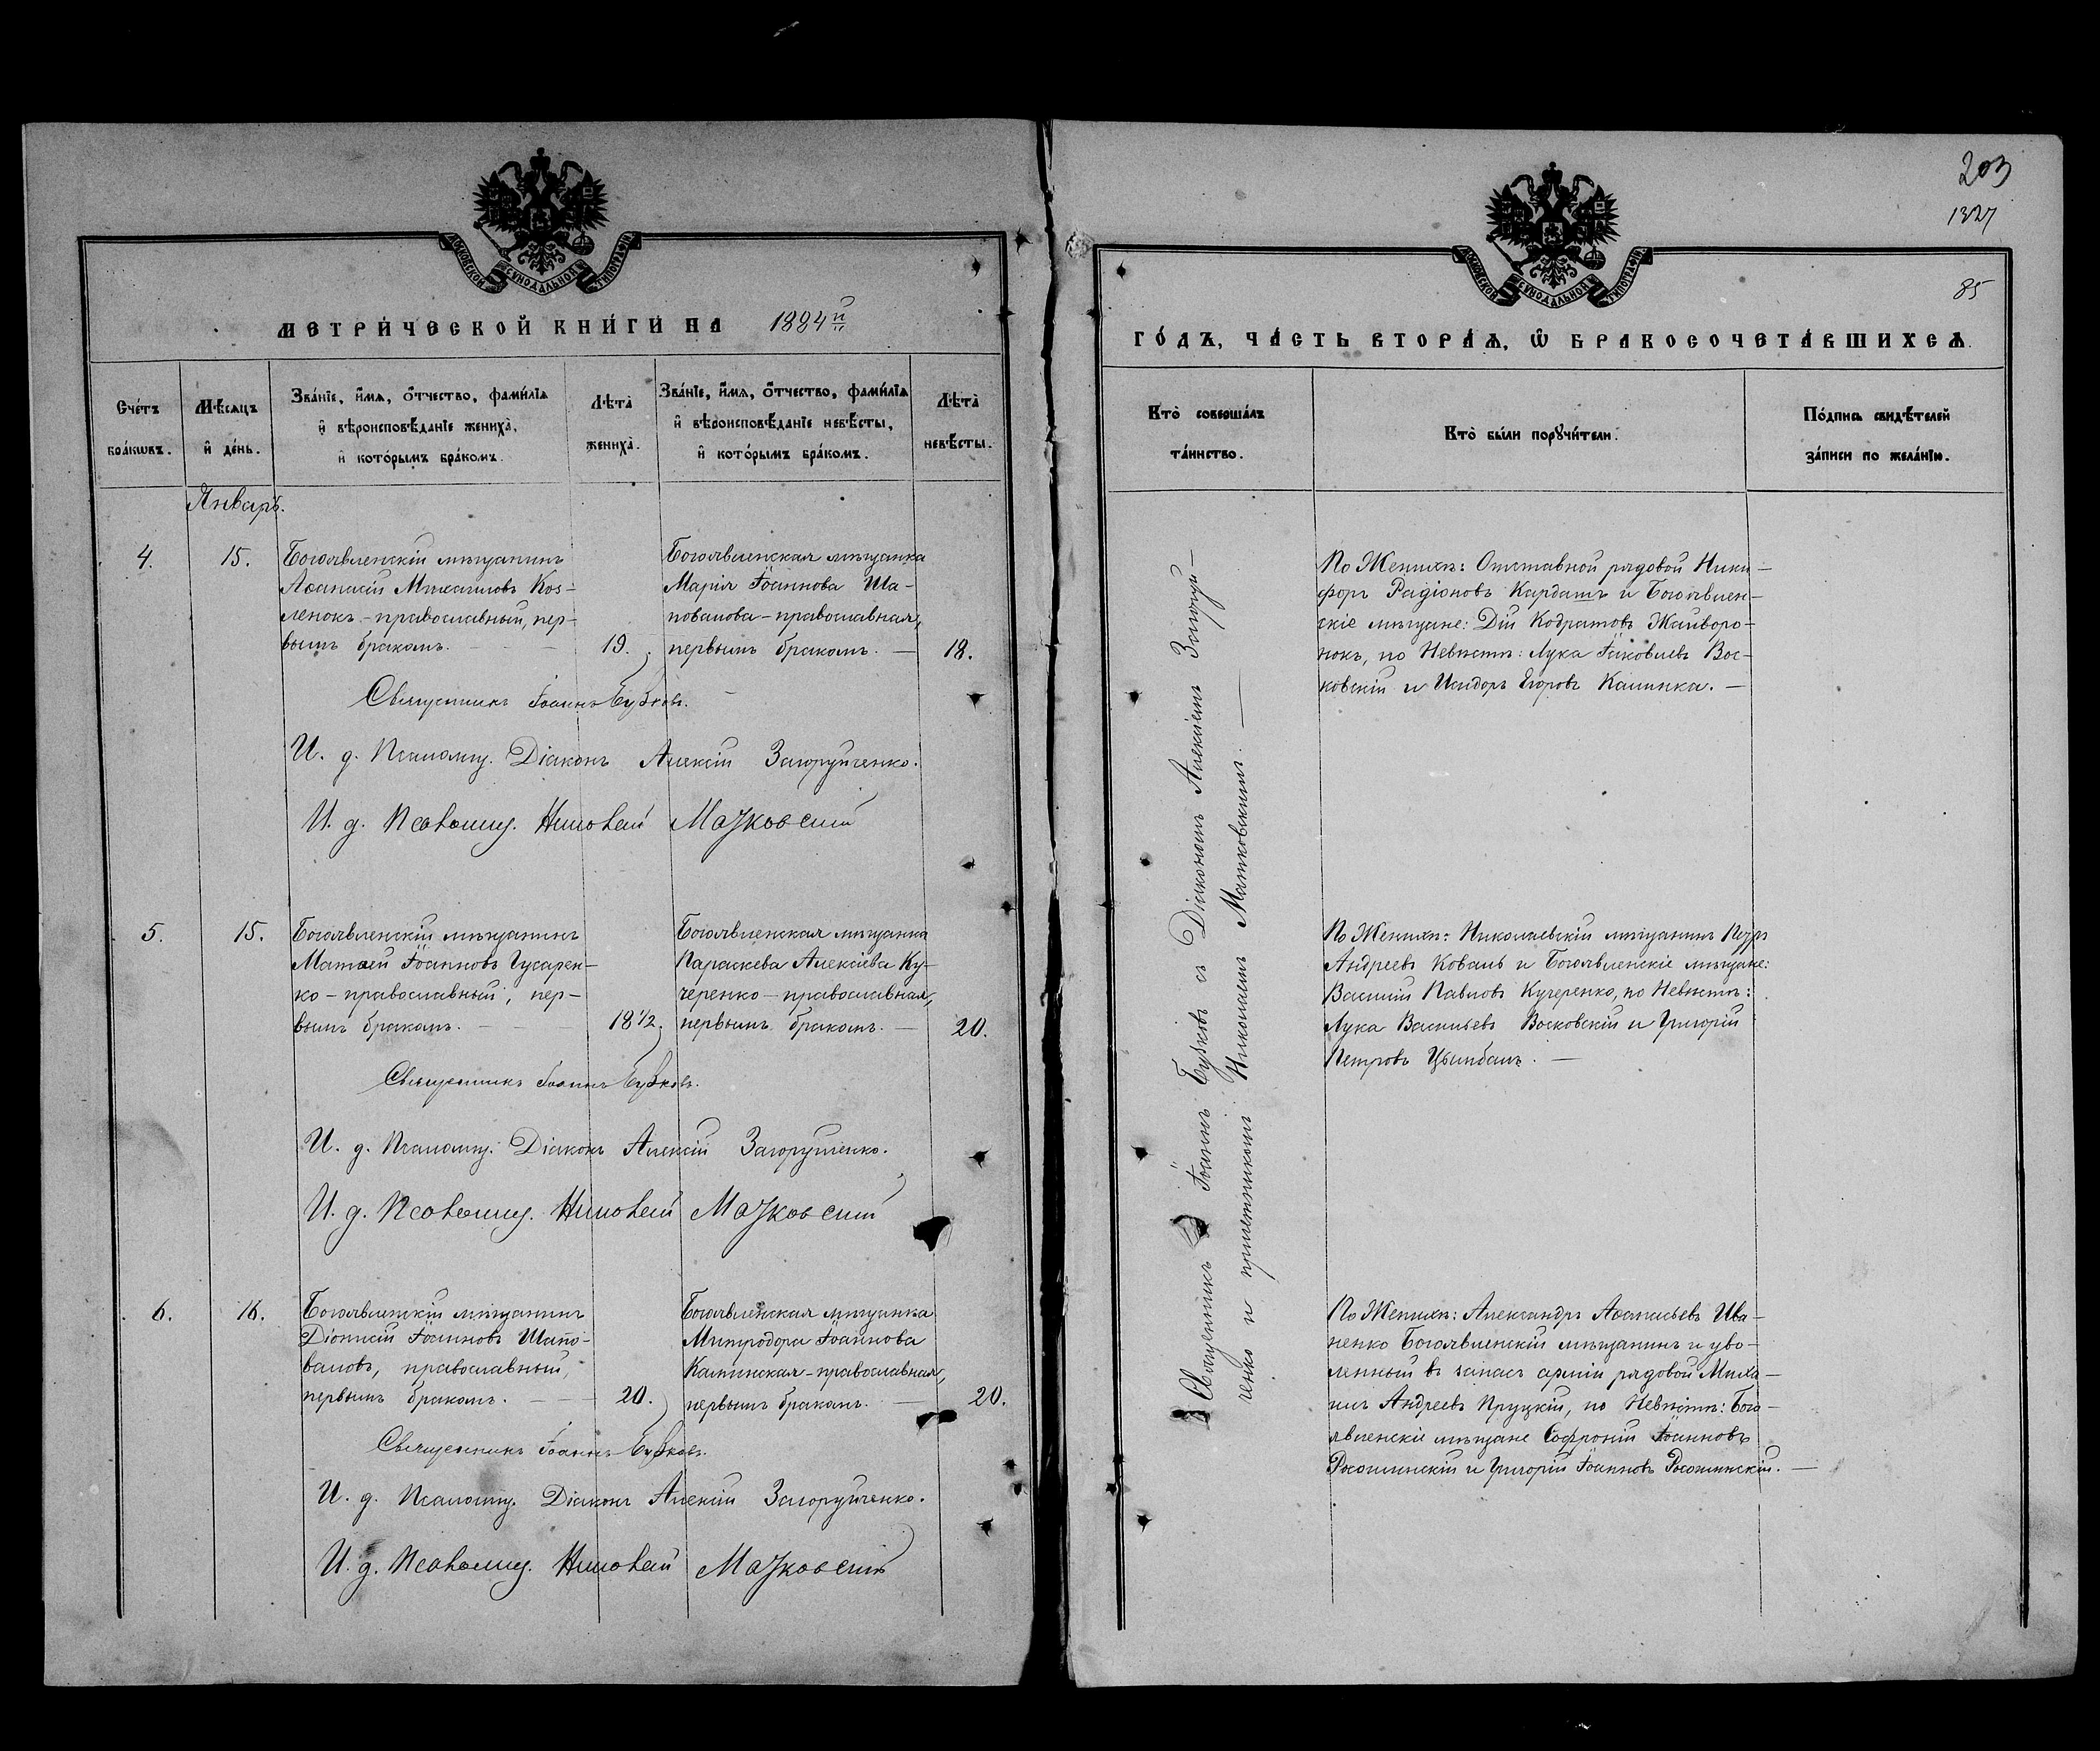 МОСКОВСКОЙ СУНОДАЛЬНОЙ ТИПОГРАФІИ
МЕТРИ́ЧЕСКОЙ КНИ́ГИ НА 1884й
Сче́тъ бра́кωвъ.
Мѣ́сѧцъ и҆ де́нь.
Зва́нїе, и҆́мѧ, ѻ҆́тчество, фами́лїѧ
и҆ вѣроисповѣ́данїе жениха̀,
и҆ кото́рымъ бра́комъ.
Лѣта̀ жениха̀.
Зва́нїе, и҆́мѧ, ѻ҆́тчество, фами́лїѧ
и҆ вѣроисповѣ́данїе невѣ́сты,
и҆ кото́рымъ бра́комъ.
Лѣта̀ невѣ́сты.
Январь.
4.
15.
Богоявленскій мѣщанинъ
Аѳанасій Михаиловъ Коз-
ленокъ - православный, пер-
вымъ бракомъ. -
19.
Богоявленская мѣщанка
Марія Іоаннова Ша-
повалова - православная,
первымъ бракомъ. -
18.
Священникъ Іоаннъ Бубковъ.
И. д. Псаломщ. Діаконъ Алексій Загоруйченко.
И. д. Псаломщ. Николай Матковскій
5.
15.
Богоявленскій мѣщанинъ
Матѳей Іоанновъ Гусарен-
ко - православный, пер-
вымъ бракомъ. -
18 1/2.
Богоявленская мѣщанка
Параскева Алексіева Ку-
черенко - православная,
первымъ бракомъ. -
20.
Священникъ Іоаннъ Бубковъ.
И. д. Псаломщ. Діаконъ Алексій Загоруйченко.
И. д. Псаломщ. Николай Матковскій
6.
16.
Богоявленскій мѣщанинъ
Діонисій Іоанновъ Шапо-
валовъ, православный,
первымъ бракомъ. -
20.
Богоявленская мѣщанка
Митродора Іоаннова
Калинская - православная,
первымъ бракомъ. -
20.
Священникъ Іоаннъ Бубковъ.
И. д. Псаломщ. Діаконъ Алексій Загоруйченко.
И. д. Псаломщ. Николай Матковскій
203
1327
85
МОСКОВСКОЙ СУНОДАЛЬНОЙ ТИПОГРАФІИ
ГО́ДЪ, ЧА́СТЬ ВТОРА́Ѧ, Ѽ БРАКОСОЧЕТА́ВШИХСѦ.
Кто̀ соверша́лъ та́инство.
Кто̀ бы́ли порꙋчи́тели.
По́дпись свидѣ́телей
за́писи по жела́нїю.
Священникъ Іоаннъ Бубковъ съ Діакономъ Алексіемъ Загоруй-
ченко и причетникомъ Николаемъ Матковскимъ. -
По Женихѣ: Отставной рядовой Ники-
форъ Радіоновъ Кардашъ и Богоявлен-
скіе мѣщане: Дій Кодратовъ Жайворо-
нокъ, по Невѣстѣ: Лука Іаковлевъ Вос-
ковскій и Исидоръ Егоровъ Калинка. -
По Женихѣ: Николаевскій мѣщанинъ Петръ
Андреевъ Коваль и Богоявленскіе мѣщане:
Василій Павловъ Кучеренко, по Невѣстѣ:
Лука Васильевъ Восковскій и Григорій
Петровъ Цымбалъ. -
По Женихѣ: Александръ Аѳанасьевъ Ива-
ненко Богоявленскій мѣщанинъ и уво-
ленный въ запасъ арміи рядовой Миха-
илъ Андреевъ Пруцкій, по Невѣстѣ: Бого-
явленскіе мѣщане Софроній Іоанновъ
Росошинскій и Григорій Іоанновъ Росошинскій. -